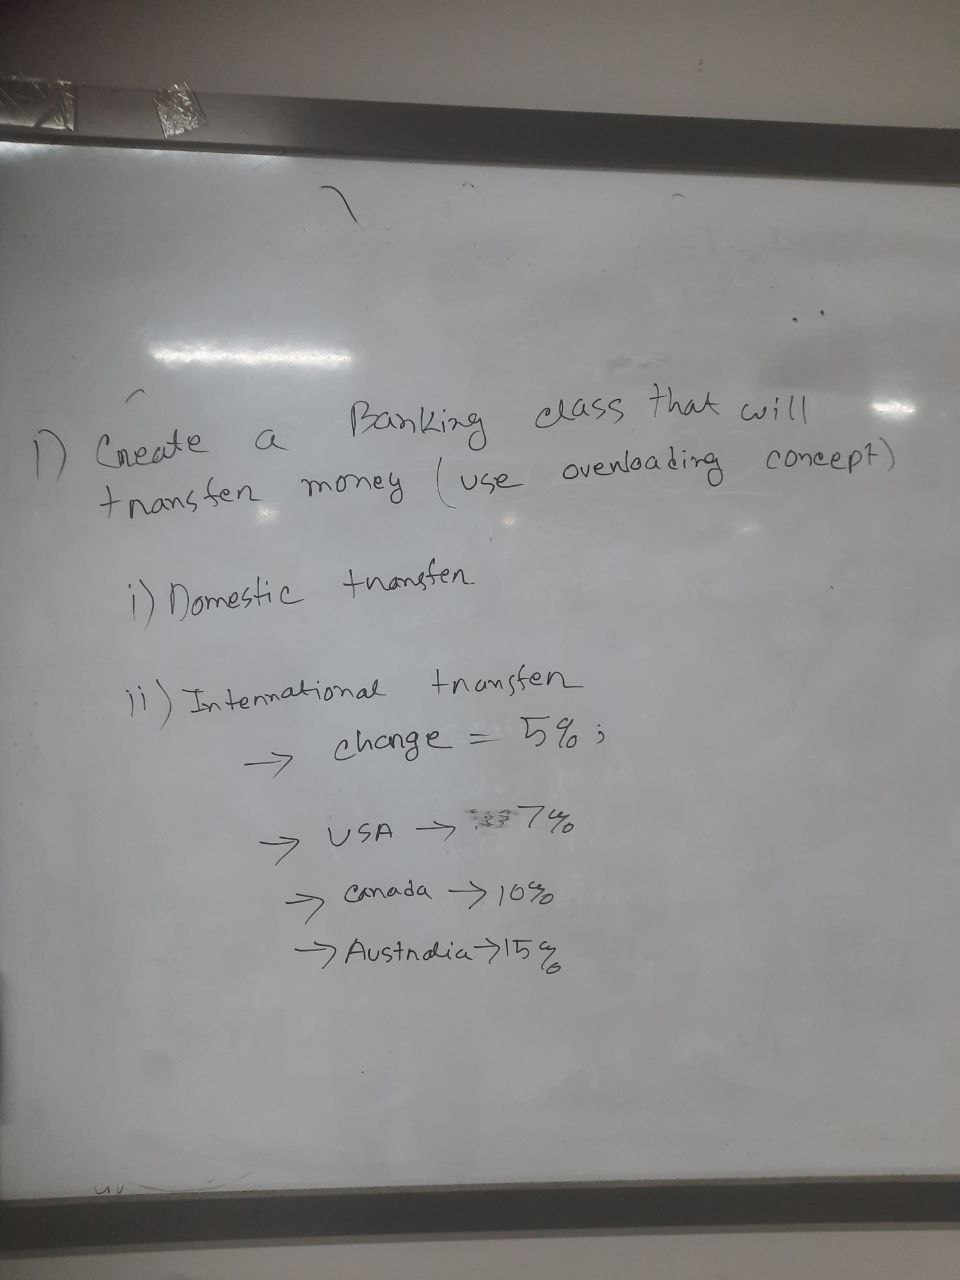 1) Create a Banking class that will
transfer money (use overloading concept)
i) Domestic transfer
ii) International transfer
→ charge = 5%;
→ USA → 7%
→ Canada → 10%
→ Australia → 15%